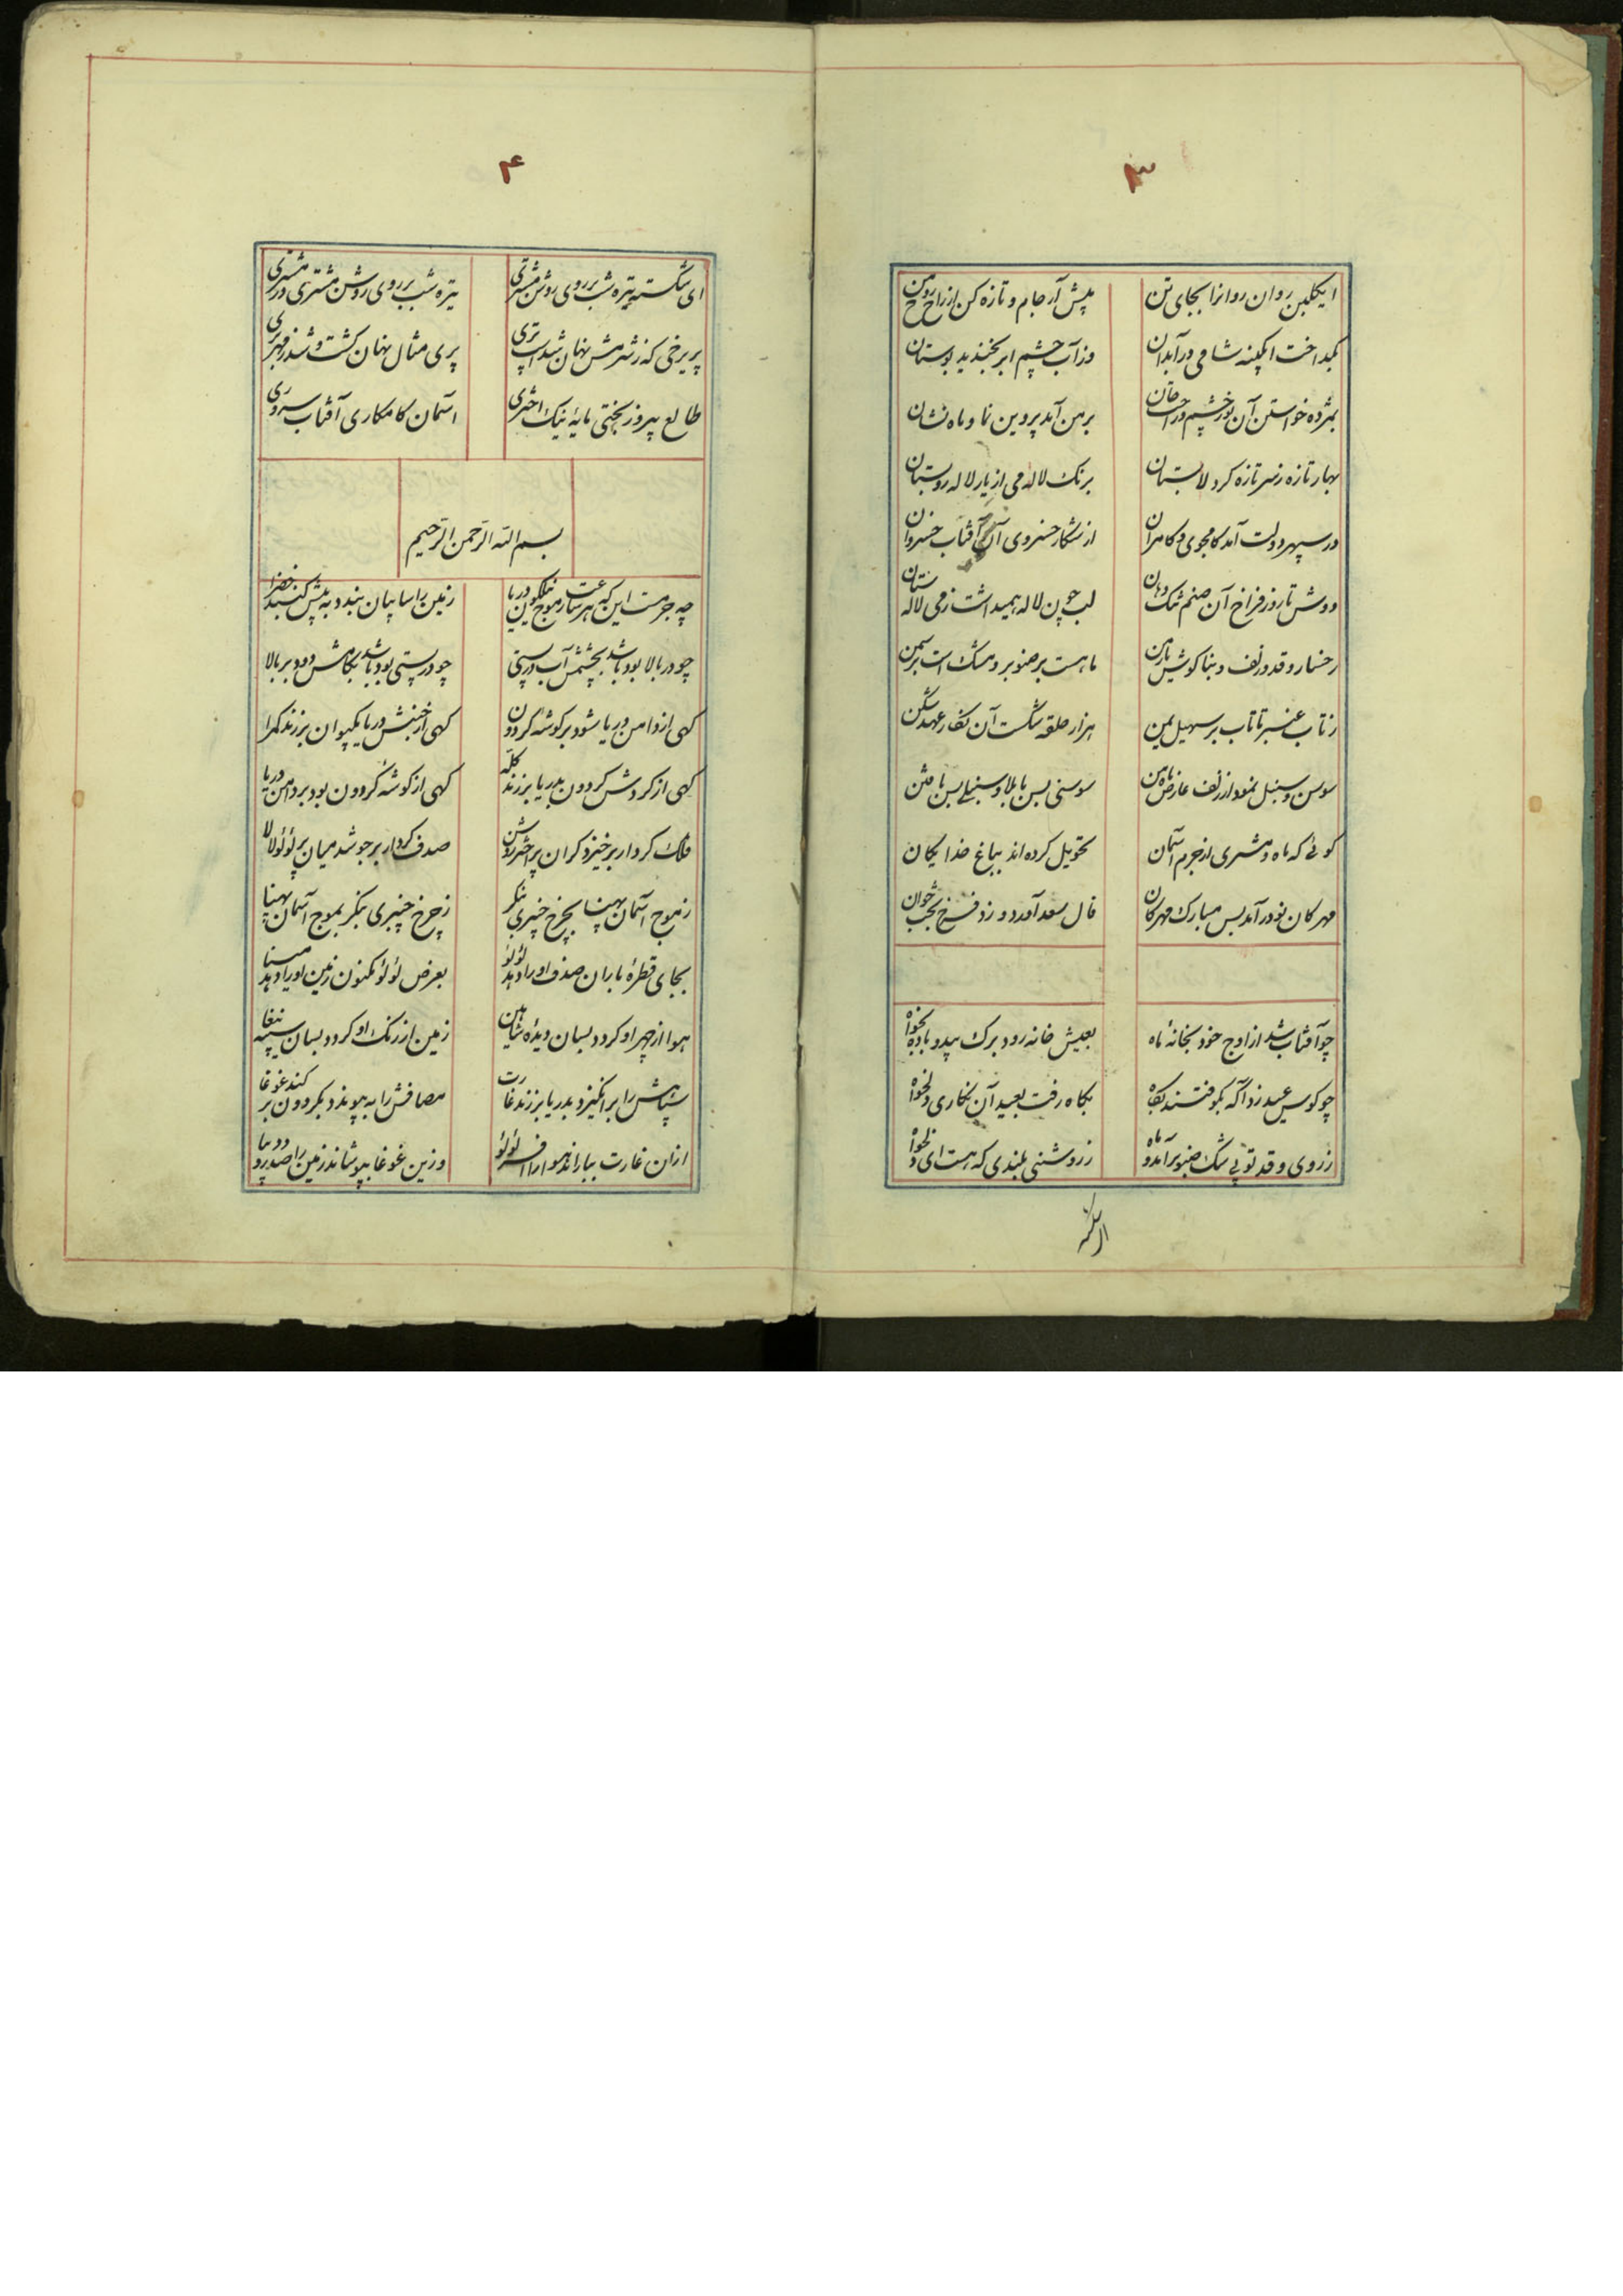 ۳
ای گلبن روان روانرا بجای تن
پیش آر جام و تازه کن از راح روح من
بگداخت آبگینه شامی در آبدان
وز آب چشم ابر بخندید بوستان
بمژده خواستن آن نور چشم و راحت جان
بر من آمد پروین نما و ماه نشان
بهار تازه ز سر تازه کرد لالستان
برنک لاله می از یار لاله روبستان
در سپهر دولت آمد کامجوی و کامران
از شکار خسروی آن آفتاب خسروان
دوش تا روز فراخ آن صنم تنک دهان
لب چون لاله همیداشت ز می لاله ستان
رخسار و قد و زلف و بناکوش یار من
ماهست بر صنوبر و مشک است بر سمن
ز تاب عنبر تا تاب بر سهیل یمن
هزار حلقه شکست آن نکار عهد شکن
سوسن و سنبل نمود از زلف عارض ماه من
سوسنی بس با بلا و سنبلی بس با فتن
کوئی که ماه و مشتری از جرم آسمان
تحویل کرده اند بباغ خدایکان
مهرکان نو در آمد بس مبارک مهرکان
فال سعد آورد و روز فرخ و بخت جوان
چو آفتاب شد از اوج خود بخانه ماه
بعیش خانه رود برک بید و باده بخواه
چو کوس عید زد آگه بکوفتند بکاه
بکاه رفت بعید آن نکاری دلخواه
ز روی و قد تو بی شک صنوبر آمد و ماه
ز روشنی بلندی که هست ای دلخواه
ای شکسته
۴
ای شکسته تیره شب بر روی روشن مشتری
تیره شب بر روی روشن مشتری در مشتری
پریرخی که ز شرمش نهان شد است پری
پری مثال نهان کشت و شد ز مهر بری
طالع پیروز بختی مایه نیک اختری
آسمان کامکاری آفتاب سروری
بسم الله الرحمن الرحیم
چه جرمست این که هر ساعت ز موج نیلکون دریا
زمین را سایبان بندد به پیش کنبد خضرا
چو در بالا بود باشد بچشمش آب در پستی
چو در پستی بود باشد بکامش دود بر بالا
کهی از دامن دریا شود بر کوشه کردون
کهی از جنبش دریا بکیوان برزند کمرا
کهی از کردش کردون بدریا برزند کله
کهی از کوشه کردون بود بر دامن دریا
فلک کردار برخیزد کران پر اختر روشن
صدف کردار برجوشد میان پر لؤلؤ لالا
ز موج آسمان پهنا بچرخ چنبری بنکر
ز چرخ چنبری بنکر بموج آسمان پهنا
بجای قطره باران صدف او را دهد لؤلؤ
بعرض لؤلؤ مکنون زمین او را دهد مینا
هوا از چهر او کردد بسان دیده شاهین
زمین از رنک او کردد بسان سینه ببغا
سپاهش را برانکیزد بدریا برزند غارت
مصافش را به پیوندد بکردون برکند غوغا
ازان غارت بباراند هوا را افسر لؤلؤ
وزین غوغا بپوشاند زمین را صد ره دیبا